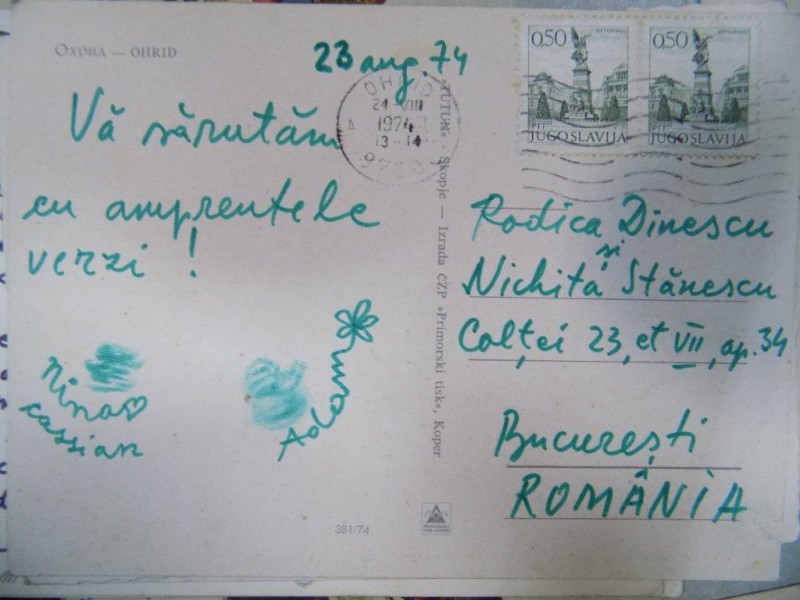 ОХРИД — OHRID
23 aug 74
OHRID
24-VIII
1974
13-14
0,50
PTT
JUGOSLAVIJA
0,50
PTT
JUGOSLAVIJA
Vă sărutăm
cu amprentele
verzi !
Nina
cassian
Adam
»TUTUN« - Skopje — Izrada ČZP »Primorski tisk«, Koper
Rodica Dinescu
și
Nichita Stănescu
Colței 23, et VII, ap. 34
București
ROMÂNIA
381/74